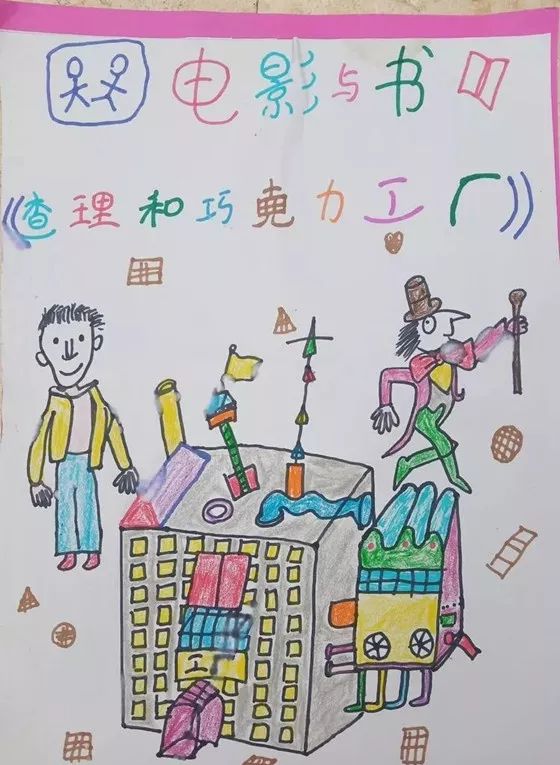 电影与书
《查理和巧克力工厂》
工